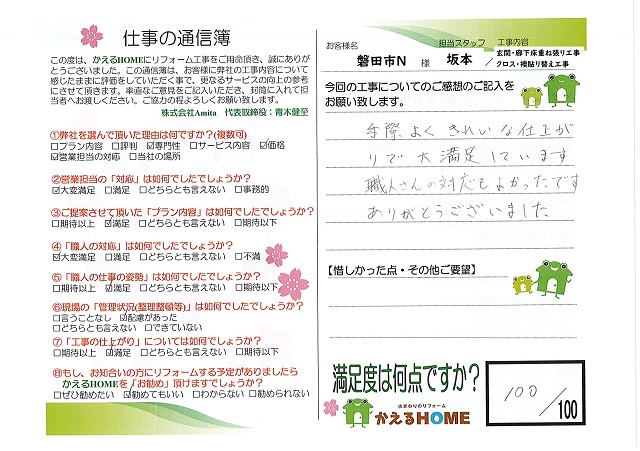 仕事の通信簿
この度は、かえるHOMEにリフォーム工事をご用命頂き、誠にありが
とうございました。この通信簿は、お客様に弊社の工事内容について
感じたままに評価をしていただく事で、更なるサービスの向上の参考
にさせて頂きます。率直なご意見をご記入いただき、封筒に入れて担
当者へお渡しください。ご協力の程よろしくお願い致します。
株式会社Amita 代表取締役：青木健至
①弊社を選んで頂いた理由は何ですか?(複数可)
□プラン内容 □評判 ☑専門性 □サービス内容 ☑価格
☑営業担当の対応 □当社の場所
②営業担当の「対応」は如何でしたでしょうか?
☑大変満足 □満足 □どちらとも言えない □事務的
③ご提案させて頂いた「プラン内容」は如何でしたでしょうか?
□期待以上 ☑満足 □どちらとも言えない □期待以下
④「職人の対応」は如何でしたでしょうか?
☑大変満足 □満足 □どちらとも言えない □不満
⑤「職人の仕事の姿勢」は如何でしたでしょうか?
□期待以上 ☑満足 □どちらとも言えない □期待以下
⑥現場の「管理状況(整理整頓等)」は如何でしたでしょうか?
□言うことなし ☑配慮があった
□どちらとも言えない □できていない
⑦「工事の仕上がり」については如何でしょうか?
□期待以上 ☑満足 □どちらとも言えない □期待以下
⑧もし、お知合いの方にリフォームする予定がありましたら
かえるHOMEを「お勧め」頂けますでしょうか?
□ぜひ勧めたい ☑勧めてもいい □わからない □勧められない
お客様名 担当スタッフ 工事内容
磐田市N 様 坂本 / 玄関・廊下床重ね張り工事
クロス・襖貼り替え工事
今回の工事についてのご感想のご記入を
お願い致します。
手際よくきれいな仕上が
りで大満足しています
職人さんの対応もよかったです
ありがとうございました
【惜しかった点・その他ご要望】
満足度は何点ですか?
100/100
ひまわりのリフォーム
かえるHOME